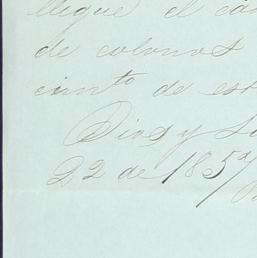 llegue el
de colonos
cinto de est
Dios y Li
22 de 185